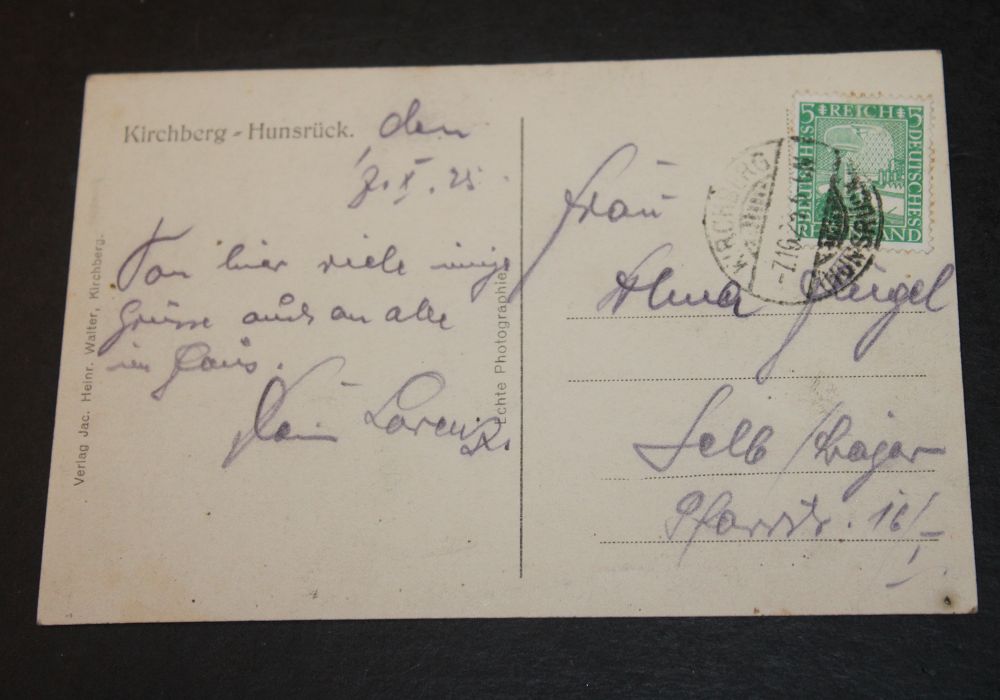 Kirchberg - Hunsrück. den
7. X. 25.
Von hier viele innige
Grüsse auch an alle
im Haus.
Dein Lorenz.
Verlag Jac. Heinr. Walter, Kirchberg.
Echte Photographie
5 REICH 5
DEUTSCHES
DEUTSCHES
RHEINLAND
KIRCHBERG
(HUNSRÜCK)
-7.10.25
Frau
Alma
Selb /Bayern
Pfarrstr. 16/I
1